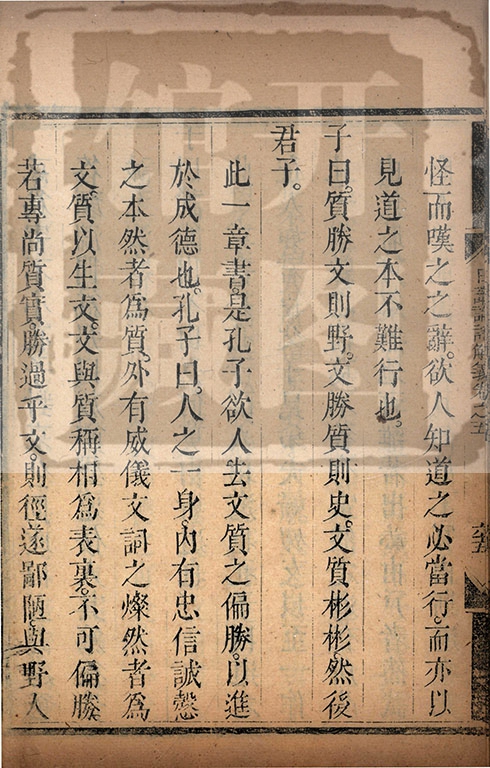 怪而嘆之之辭。欲人知道之必當行。而亦以
見道之本不難行也。
子曰。質勝文則野。文勝質則史。文質彬彬。然後
君子。
此一章書。是孔子欲人去文質之偏勝。以進
於成德也。孔子曰。人之一身。內有忠信誠慤
之本然者爲質。外有威儀文詞之燦然者爲
文。質以生文。文與質稱。相爲表裏。不可偏勝
若專尚質實。勝過乎文。則徑遂鄙陋。與野人